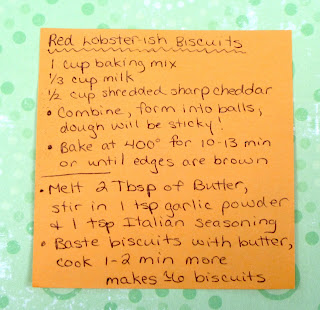 Red Lobster-ish Biscuits
1 cup baking mix
1/3 cup milk
1/2 cup shredded sharp cheddar
• Combine, form into balls,
dough will be sticky!
• Bake at 400° for 10-13 min
or until edges are brown
• Melt 2 Tbsp of Butter,
stir in 1 tsp garlic powder
& 1 tsp Italian seasoning
• Baste biscuits with butter,
cook 1-2 min more
makes 16 biscuits